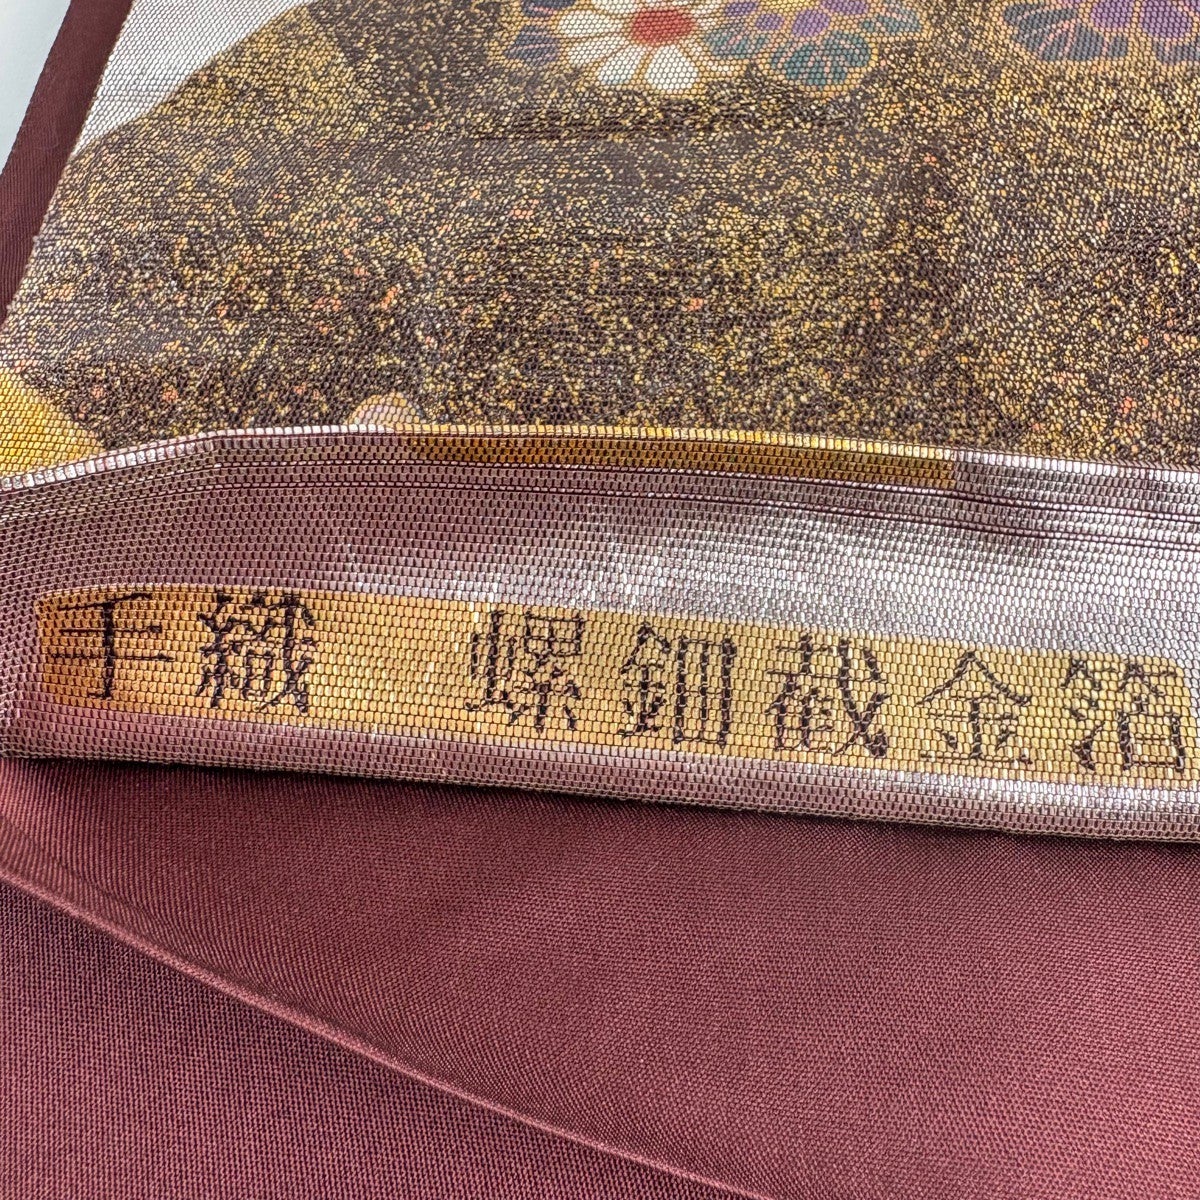 手織 螺鈿截金箔